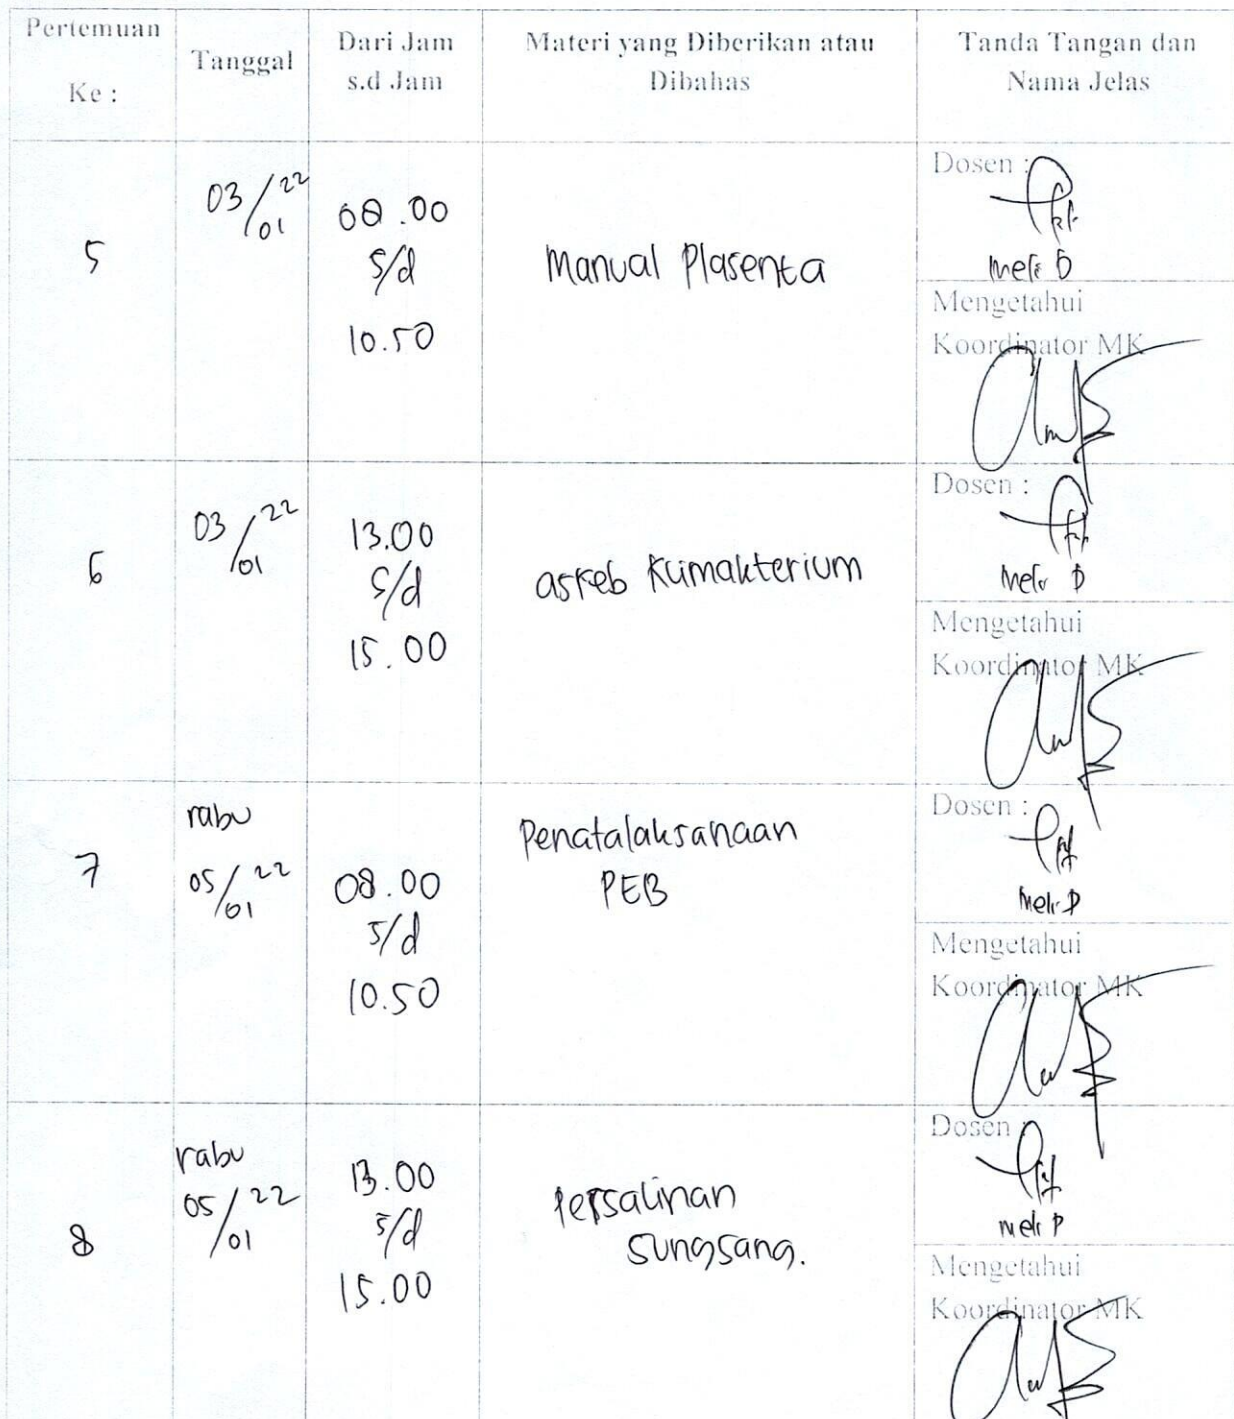 Pertemuan
Ke :
Tanggal
Dari Jam
s.d Jam
Materi yang Diberikan atau
Dibahas
Tanda Tangan dan
Nama Jelas
5
03/22
01
08.00
s/d
10.50
Manual Plasenta
Dosen :
Meli D
Mengetahui
Koordinator MK
6
03/22
01
13.00
s/d
15.00
askeb Klimakterium
Dosen :
Meli D
Mengetahui
Koordinator MK
7
rabu
05/22
01
08.00
s/d
10.50
Penatalaksanaan
PEB
Dosen :
Meli D
Mengetahui
Koordinator MK
8
rabu
05/22
01
13.00
s/d
15.00
Persalinan
Sungsang.
Dosen :
Meli D
Mengetahui
Koordinator MK